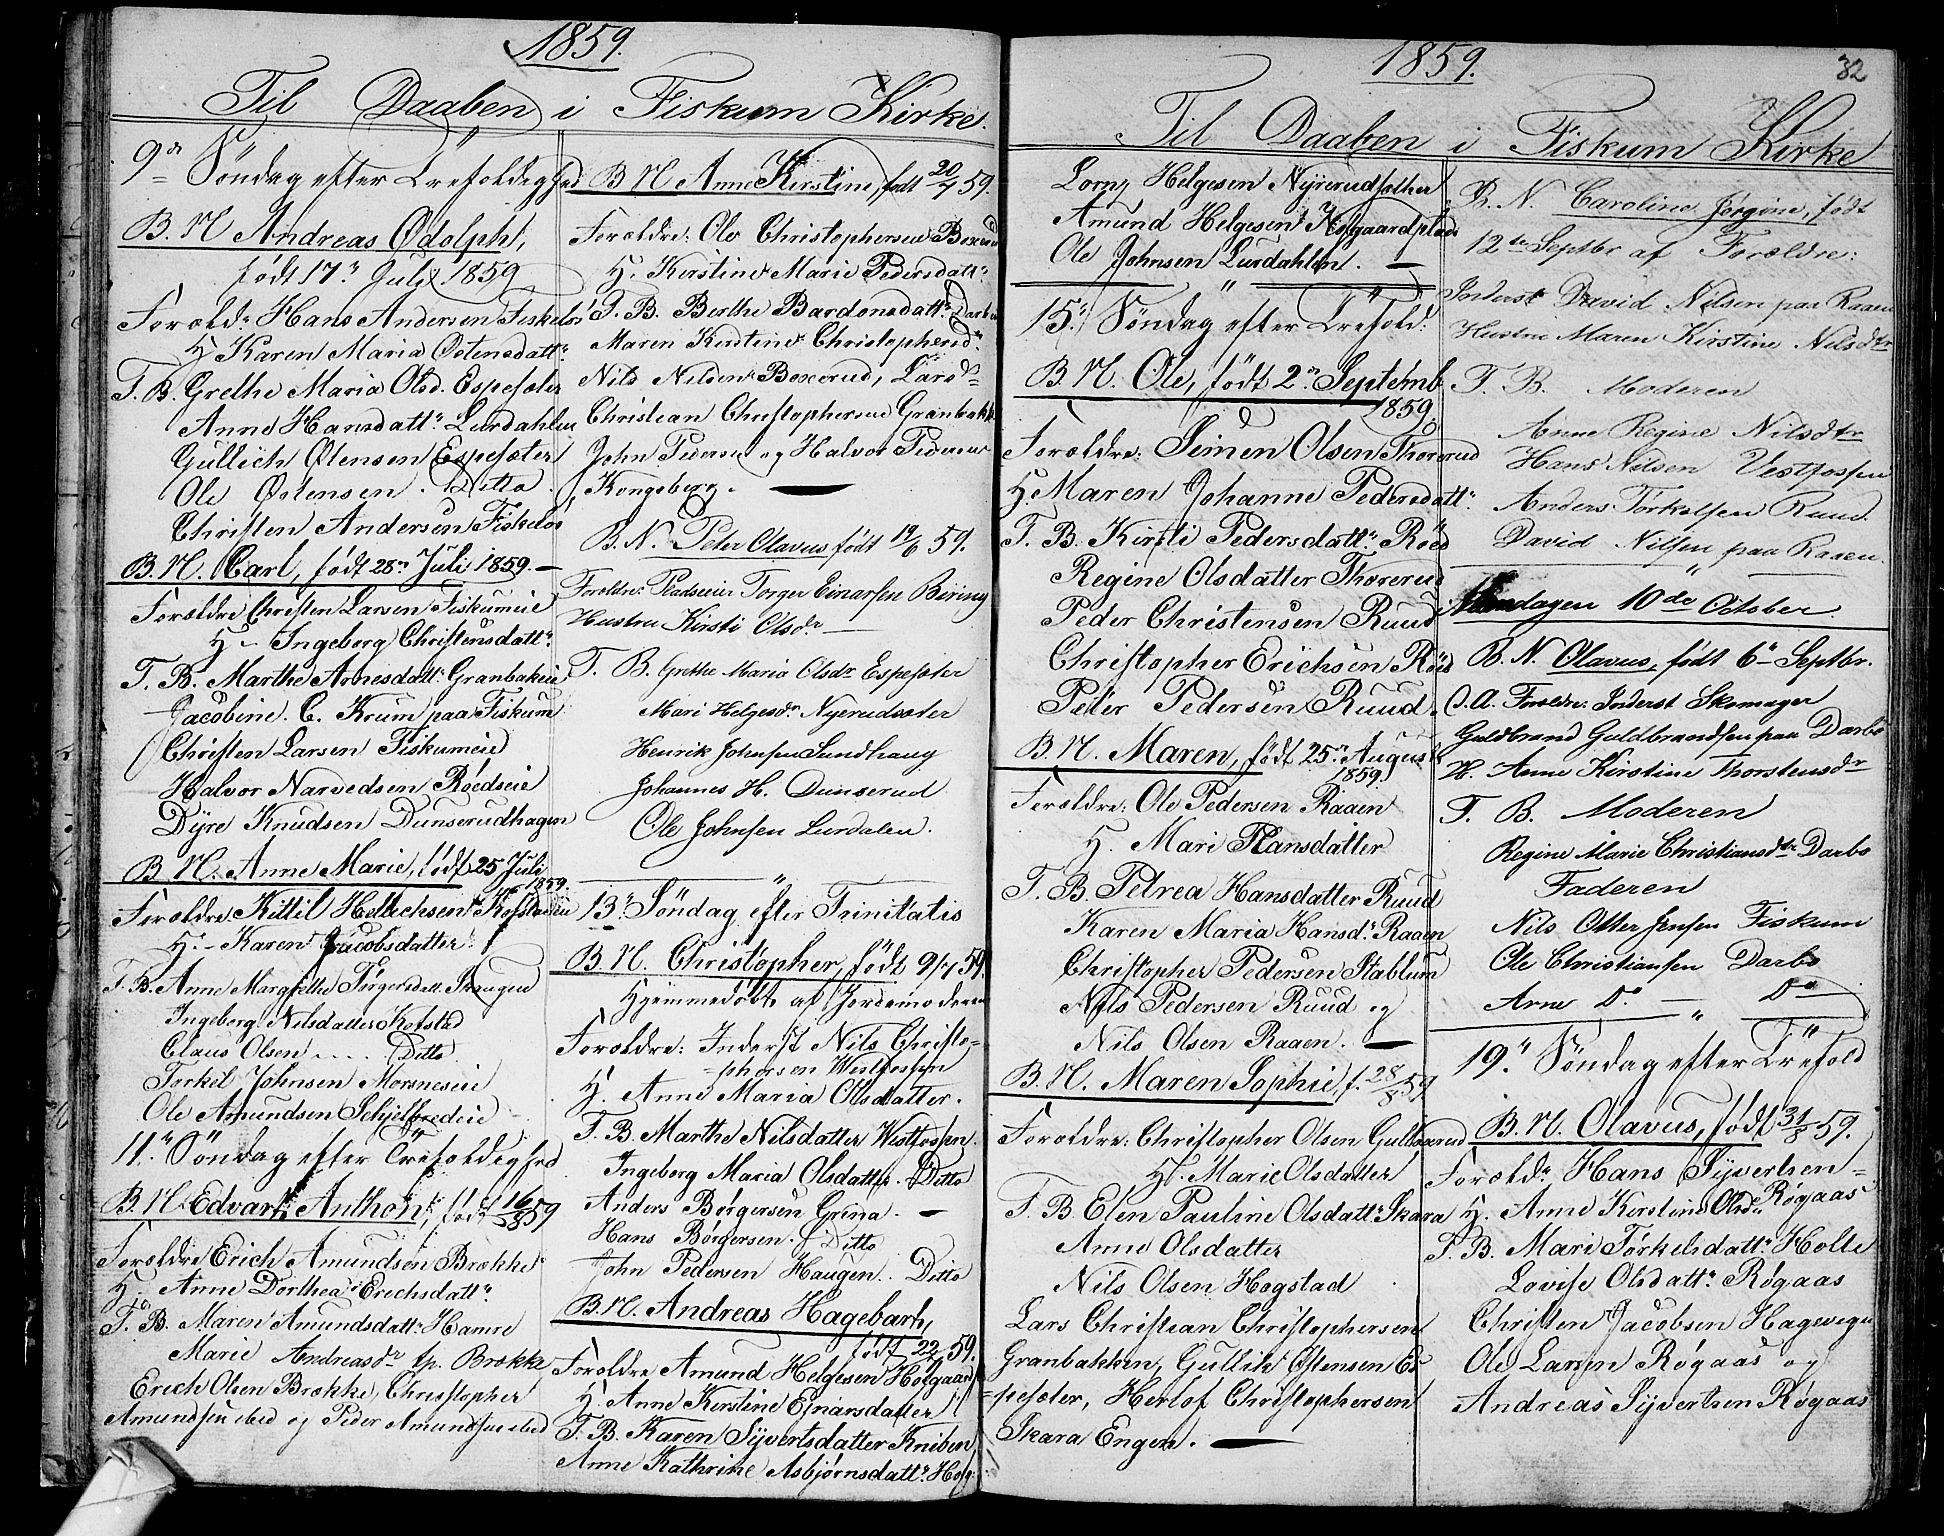 1859.
Til Daaben i Fiskum Kirke.
9de Søndag efter Trefoldighed
B. N. Andreas Odolph,
født 17de Juli 1859
Foræld: Hans Andersen Fiskeløs
H. Karen Maria Østensdattr
F. B. Grethe Maria Olsd. Espesæter
Anne Hansdattr Lurdahlen
Gullich Ølensen Espesæter
Ole Østensen. Ditto
Christen Andersen Fiskeløs
B. N. Carl, født 28de Juli 1859.
Forældre Christen Larsen Fiskumeie
H. Ingeborg Christensdattr
F. B. Marthe Arnesdattr Granbakeie
Jacobine. C. Krum paa Fiskum
Christen Larsen Fiskumeie
Halvor Narvedsen Røedseie
Dyre Knudsen Dunserudhagen
B. N. Anne Marie, født 25 Juli
1859.
Forældre Kittil Hellechsen
H. Karen Jacobsdatter
F. B. Anne Margrethe Torgersdatt. Skougen
Ingeborg Nilsdatter Kofstad
Claus Olsen . . . Ditto.
Torkil Johnsen Morsneseie
Ole Amundsen Schjelbredeie
11te Søndag efter Trefoldighed
B. N. Edvart Anthon, født 16/8 59
Forældre Erich Amundsen Brække
H. Anne Dorthea Erichsdattr
F. B. Maren Amundsdattr Hamre
Marie Andreasdr tp. Brække
Erich Olsen Brække, Christopher
Amundsen ibid og Peder Amundsen ibid
B N Anne Kirstine, født 20/7 59.
Forældre: Ole Christophersen Boxerud
H. Kirstine Marie Pedersdattr
F. B. Berthe Bardonsdattr Darbu
Maren Kirstine Christophersdr
Nils Nilsen Boxerud, Lars
Christian Christophersen Granbakk
John Pedersen og Halvor Pedersen
Kongsberg.
B. N. Peter Olavus født 19/6 59.
Forældre: Pladseier Torger Einarsen Børing
Hustru Kirsti Olsdr
F. B. Grethe Maria Olsdr Espesæter
Mari Helgesdr Nyerudsæter
Henrik Johnsen Sundhaug
Johannes H. Dunserud
Ole Johnsen Lurdalen.
13de Søndag efter Trinitatis
B. N. Christopher, født 9/7 59.
Hjemmedøbt af Jordemoderen
Forældre: Inderst Nils Christo=
=phersen Westfossen
H. Anne Maria Olsdatter.
F. B. Marthe Nilsdatter Westfossen.
Ingeborg Maria Olsdatter. Ditto
Anders Børgersen Grina.
Hans Børgersen. Ditto
John Pedersen Haugen. Ditto
B. N. Andreas Hagebart,
født 22/ 59.
Forældre Amund Helgesen Holgaard
H. Anne Kirstine Ejnarsdatter
F. B. Karen Syvertsdatter Kniben,
Anne Kathrine Asbjørnsdattr Hog
1859.
32
Til Daaben i Fiskum Kirke
Lornz Helgesen Nyrerudsæther
Amund Helgesen Holgaardplads
Ole Johnsen Lurdahlen.
15de Søndag efter Trefold:
B. N. Ole, født 2den Septemb.
1859
Forældre: Seimen Olsen Thorerud
H. Maren Johanne Pedersdattr
F. B. Kirsti Pedersdattr Røed
Regine Olsdatter Thorerud
Peder Christensen Ruud
Christopher Erichsen Røed
Peter Pedersen Ruud.
B. N. Maren, født 25de August
1859.
Forældre: Ole Pedersen Raaen
H. Mari Hansdatter
F. B. Petrea Hansdatter Ruud
Karen Maria Hansd. Raaen
Christopher Pedersen Stablum
Nils Pedersen Ruud og
Nils Olsen Raaen.
B. N. Maren Sophie, f. 28/8 59
Forældre: Christopher Olsen Gullserud
H. Marie Olsdatter
F. B. Elen Pauline Olsdattr Skara
Anne Olsdatter
Nils Olsen Hogstad
Lars Christian Christophersen
Granbakken, Gullik Østensen Es
=pesæter, Herlof Christophersen
Skara Engen.
B. N. Caroline Jørgine, født
12te Septbr af Forældre:
Inderst David Nilsen paa Raaen
Hustru Maren Kirstine Nilsdtr
F. B. Moderen
Anne Regine Nilsdtr
Hans Nilsen Vestfossen
Anders Torkelsen Ruud.
David Nilsen paa Raaen.
Mandagen 10de October.
B. N. Olavus, født 6te Septbr.
O. A. Forældr: Inderst Skomager
Guldbrand Guldbrandsen paa Darbo
H. Anne Kirstine Thorstensdr
F. B. Moderen
Regine Marie Christiansdtr Darbo
Faderen
Nils Otter Jensen Fiskum
Ole Christiansen Darbo
Arne Do Do
19de Søndag efter Trefold
B. N. Olavus, født 31/8 59.
Foræld: Hans Syvertsen
H. Anne Kirstine Olsd. Røgaas
F. B. Mari Torkelsdattr Holte
Lovise Olsdattr Røgaas
Christen Jacobsen Hagevegn
Ole Larsen Røgaas og
Andreas Syvertsen Røgaas